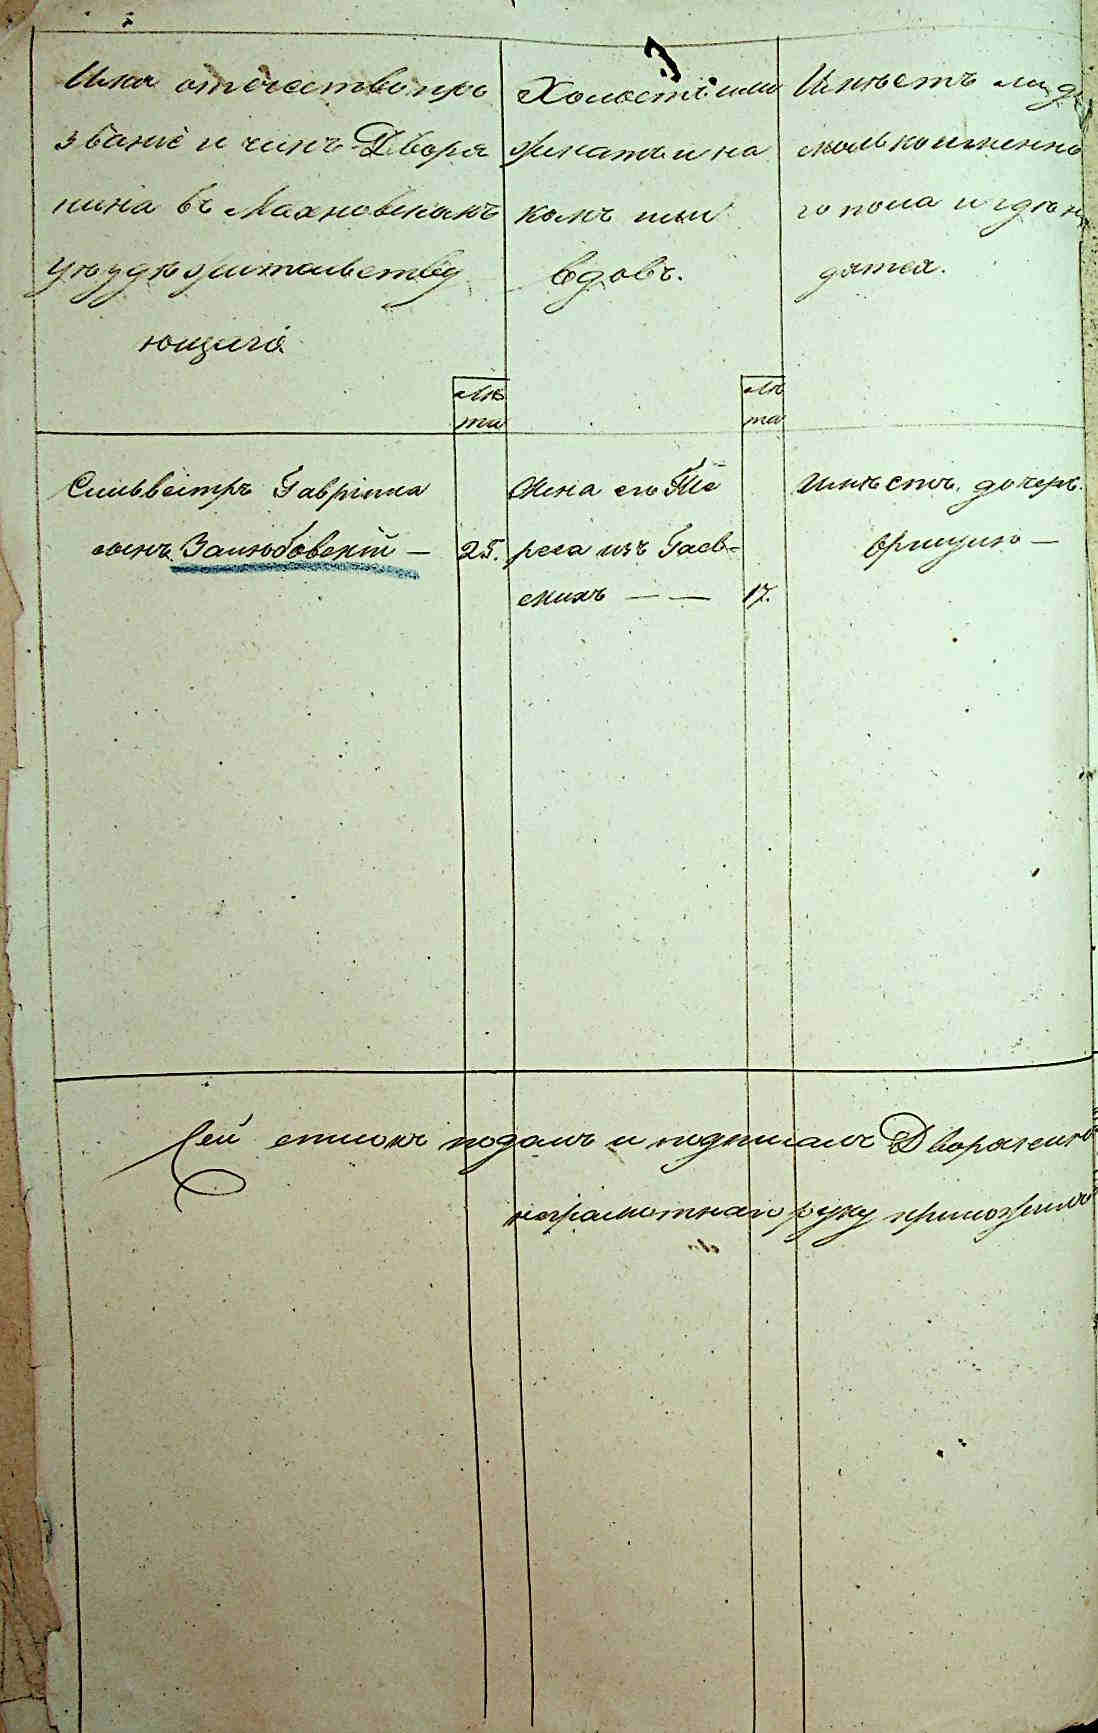 3
Имя отечество про
звание и чинъ Дворя
нина въ Махновскомъ
уѣздѣ жительству
ющаго
лѣ
та
Холостъ или
женатъ и на
комъ или
вдовъ.
лѣ
та
Имѣетъ ли дѣ
сколько именно
го пола и гдѣ на
дятся.
Сильвестръ Гавріила
сынъ Залюбовскій — 25.
Жена его Те
реса изъ Гаев-
скихъ — — 17.
Имѣетъ дочерь
—
Сей списокъ подалъ и подписалъ Дворянинъ
неграмотнаго руку приложилъ